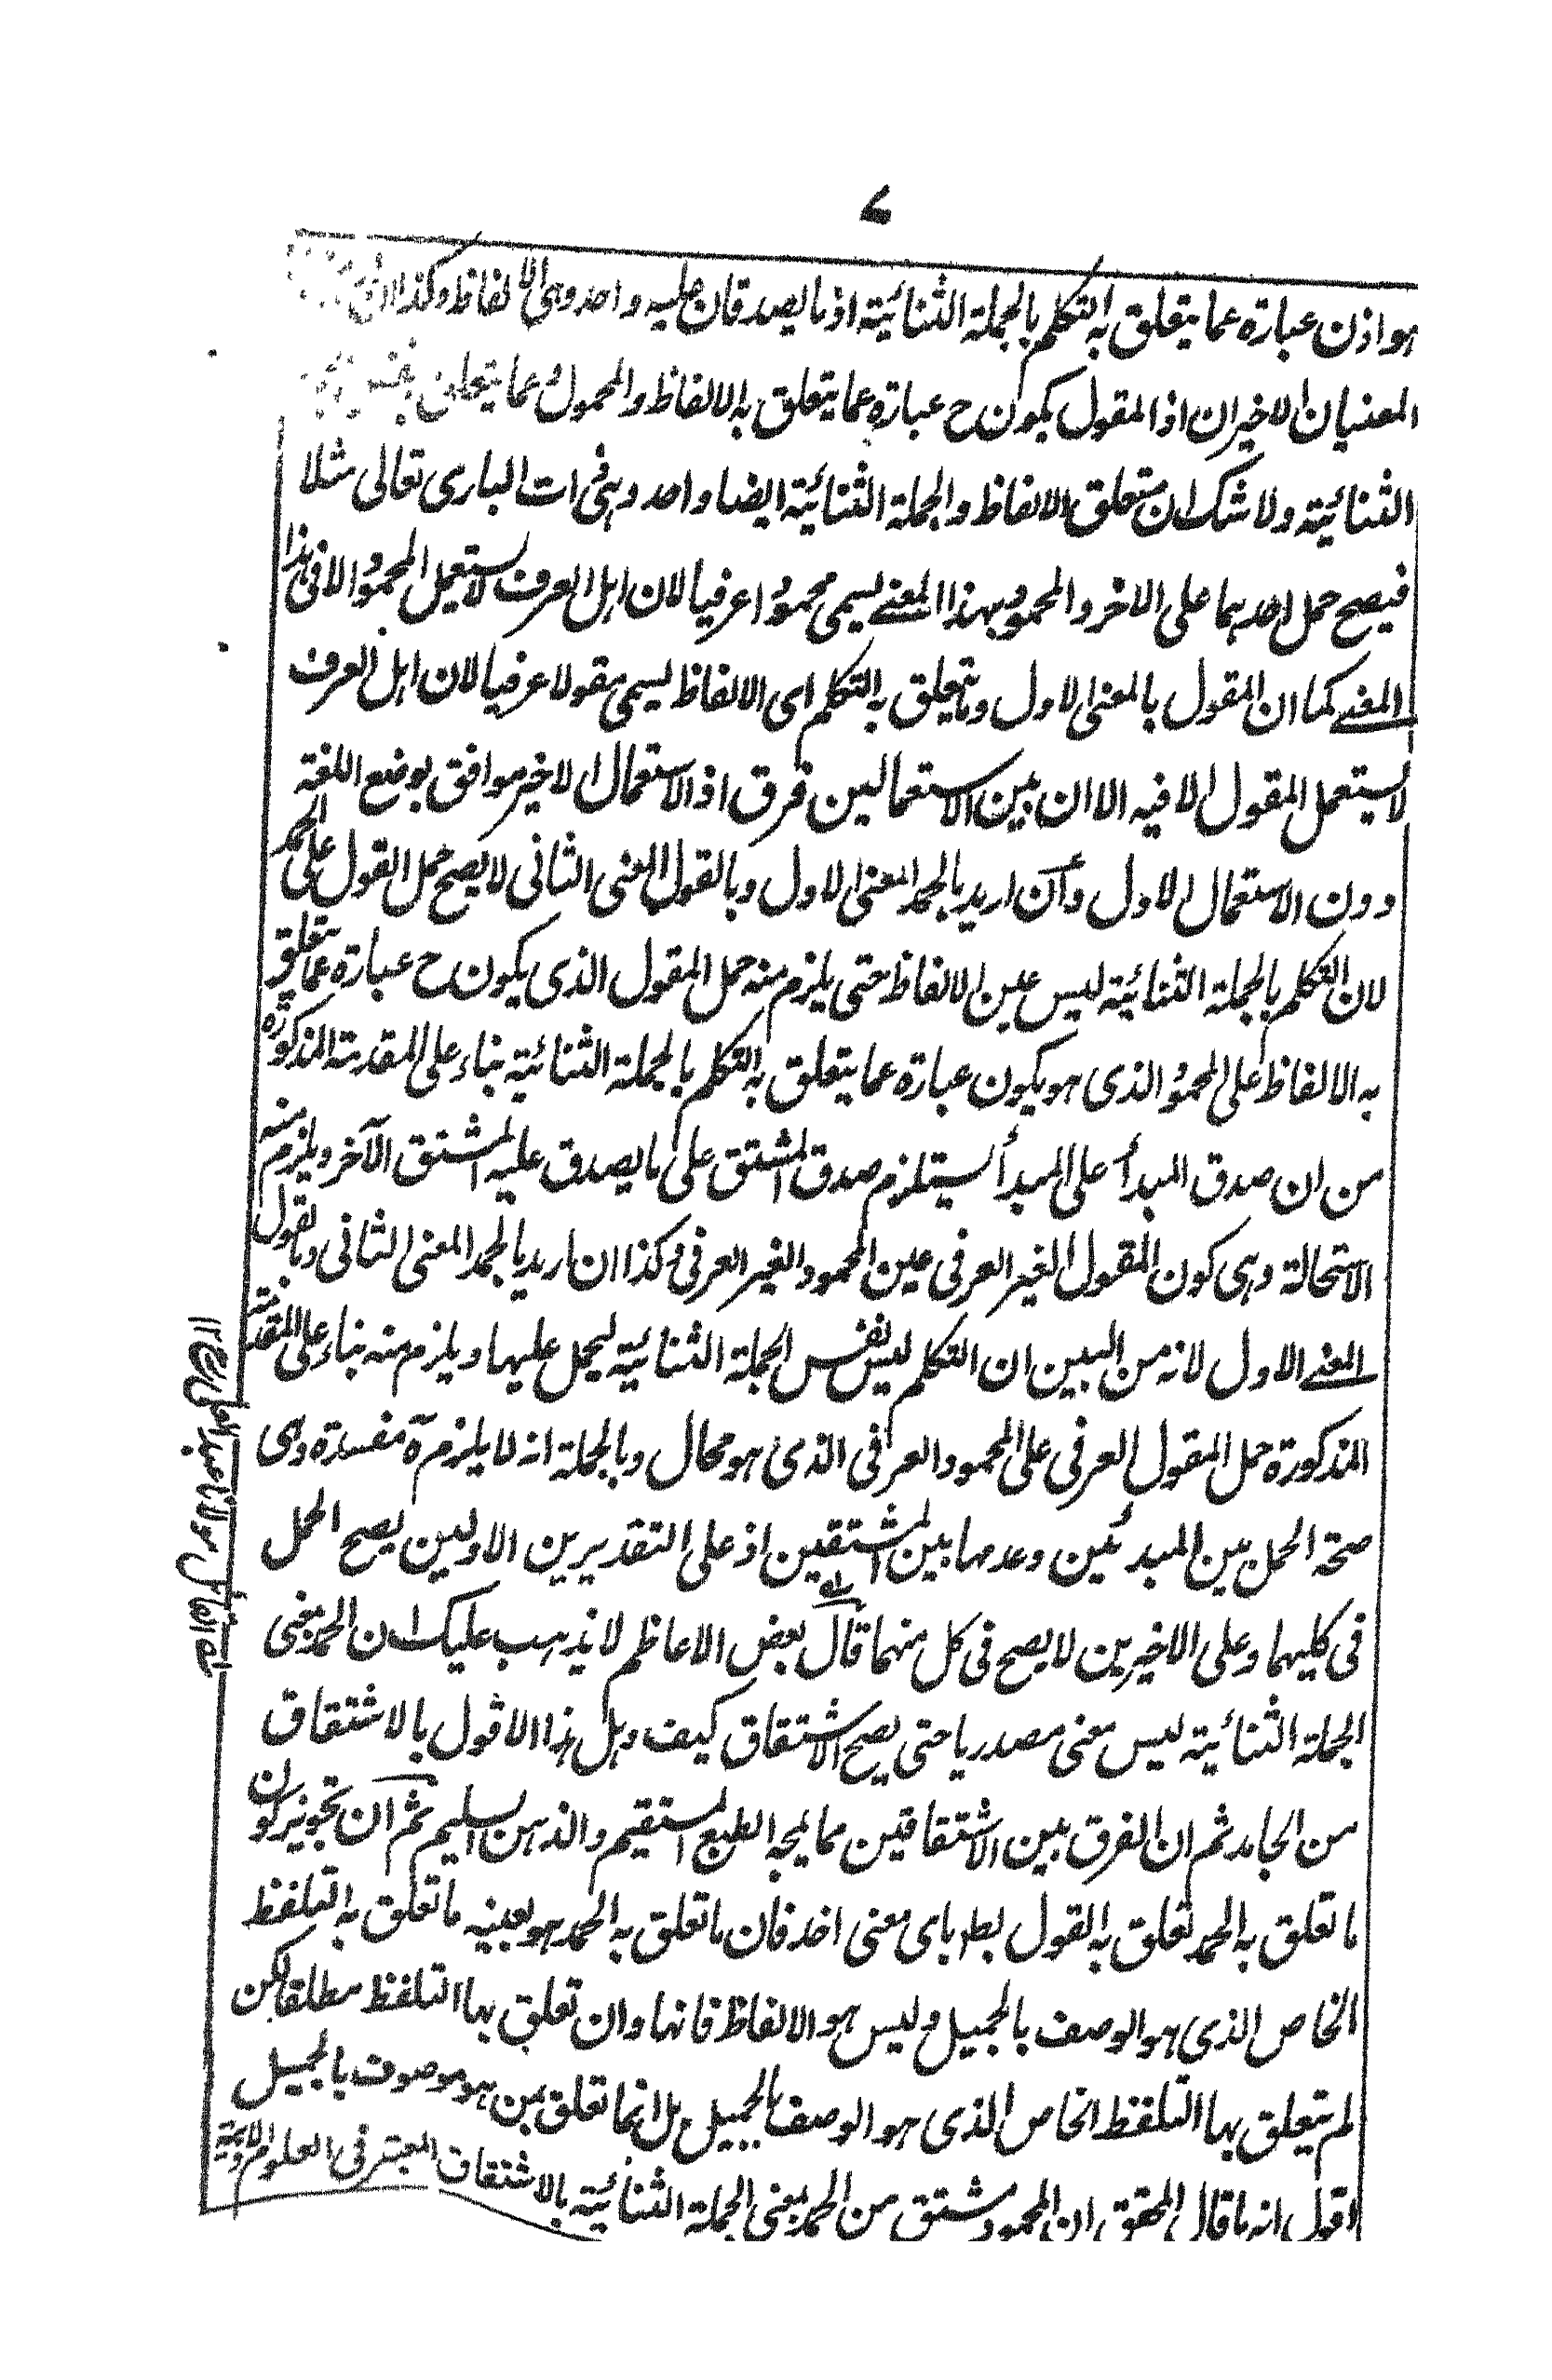 ٧
هو اذن عبارة عما يتعلق به التكلم بالجملة الثنائية اذ ما يصدقان عليه واحد وهى الالفاظ وكذا
المعنيان الاخيران اذ المقول يكون ح عبارة عما يتعلق به الالفاظ والمحمود عما يتعلق
الثنائية ولا شك ان متعلق الالفاظ والجملة الثنائية ايضا واحد وهى ذات البارى تعالى مثلا
فيصح حمل احدهما على الاخر والمحمود بهذا المعنے يسمى محمودا عرفيا لان اهل العرف لا يستعمل المحمود الا فى هذا
المعنے كما ان المقول بالمعنى الاول وما يتعلق به التكلم اى الالفاظ يسمى مقولا عرفيا لان اهل العرف
لا يستعمل المقول الا فيه الا ان بين الاستعمالين فرق اذ الاستعمال الاخير موافق بوضع اللغة
دون الاستعمال الاول وآن اريد بالحمد المعنى الاول وبالقول المعنى الثانى لا يصح حمل القول على الحمد
لان التكلم بالجملة الثنائية ليس عين الالفاظ حتى يلزم منه حمل المقول الذى يكون ح عبارة عما يتعلق
به الالفاظ على المحمود الذى هو يكون عبارة عما يتعلق به التكلم بالجملة الثنائية بناء على المقدمة المذكورة
من ان صدق المبدأ على المبدأ يستلزم صدق المشتق على ما يصدق عليه المشتق الآخر ويلزم منه
الاستحالة وهى كون المقول الغير العرفى عين المحمود الغير العرفى وكذا ان اريد بالحمد المعنى الثانى وبالقول
المعنے الاول لانه من البين ان التكلم ليس نفس الجملة الثنائية ليحمل عليها ويلزم منه بناء على المقدمة
المذكورة حمل المقول العرفى على المحمود العرفى الذى هو محال وبالجملة انه لا يلزم آه مفسدة وهى
صحة الحمل بين المبدئين وعدمها بين المشتقين اذ على التقديرين الاولين يصح الحمل
فى كليهما وعلى الاخيرين لا يصح فى كل منهما قال بعض الاعاظم لا يذهب عليك ان الحمد بمعنى
الجملة الثنائية ليس معنى مصدريا حتى يصح الاشتقاق كيف وهل هذا الا قول بالاشتقاق
من الجامد ثم ان الفرق بين الاشتقاقين مما يمجه الطبع المستقيم والذهن السليم ثم ان تجويز كون
ما تعلق به الحمد تعلق به القول بط باى معنى اخذ فان ما تعلق به الحمد هو بعينه ما تعلق به التلفظ
الخاص الذى هو الوصف بالجميل وليس هو الالفاظ فانها وان تعلق بها التلفظ مطلقا لكن
لم يتعلق بها التلفظ الخاص الذى هو الوصف بالجميل بل انما تعلق بمن هو موصوف بالجميل
اقول انه ما قال المحقق ان المحمود مشتق من الحمد بمعنى الجملة الثنائية بالاشتقاق المعتبر فى العلوم الادبية